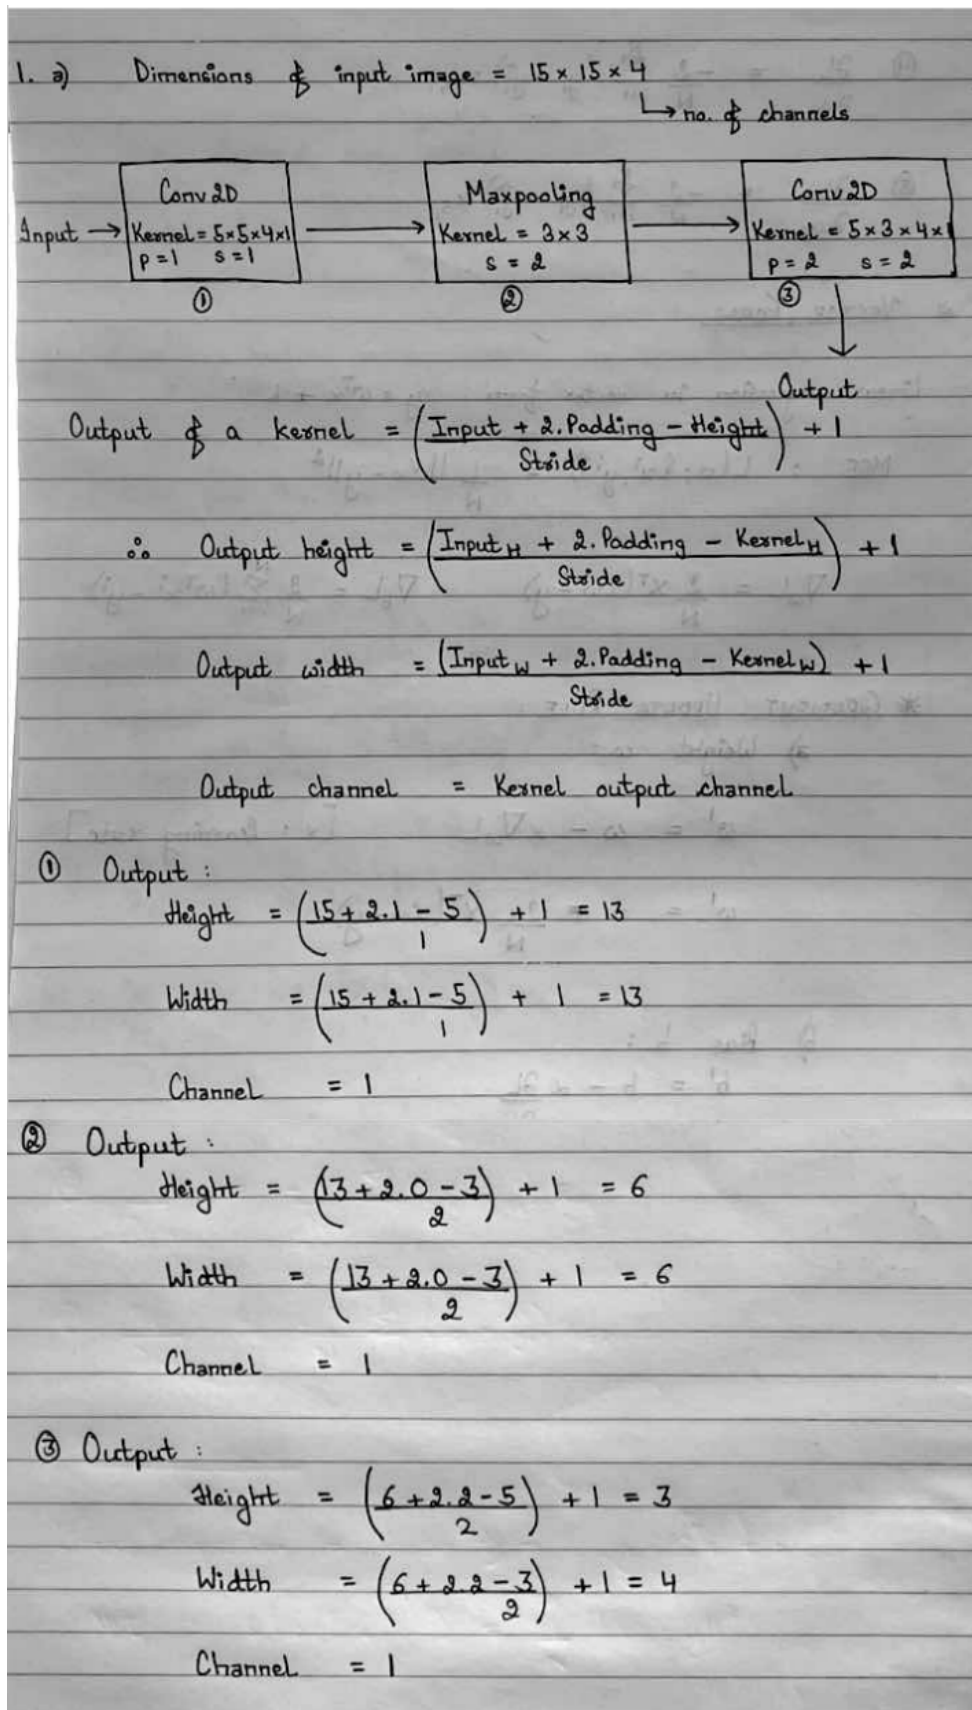 1. a) Dimensions of input image = 15 × 15 × 4
↳ no. of channels
Input → Conv2D Kernel = 5×5×4×1 p=1 s=1 → Maxpooling Kernel = 3×3 s = 2 → Conv2D Kernel = 5×3×4×1 p=2 s=2
① ② ③
Output
Output of a kernel = (Input + 2.Padding - Height / Stride) + 1
∴ Output height = (Input_H + 2.Padding - Kernel_H / Stride) + 1
Output width = (Input_W + 2.Padding - Kernel_W) / Stride + 1
Output channel = Kernel output channel
① Output :
Height = (15 + 2.1 - 5 / 1) + 1 = 13
Width = (15 + 2.1 - 5 / 1) + 1 = 13
Channel = 1
② Output :
Height = (13 + 2.0 - 3 / 2) + 1 = 6
Width = (13 + 2.0 - 3 / 2) + 1 = 6
Channel = 1
③ Output :
Height = (6 + 2.2 - 5 / 2) + 1 = 3
Width = (6 + 2.2 - 3 / 2) + 1 = 4
Channel = 1